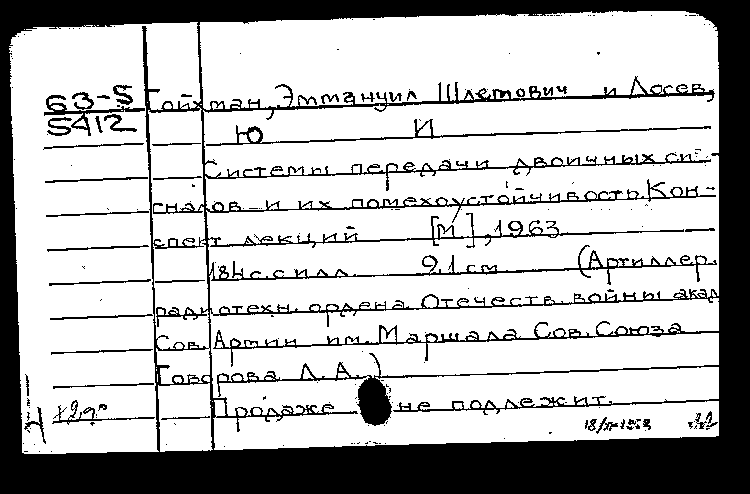 63-5 Гойхман, Эммануил Шлемович и Лосев,
5412 Ю И
Системы передачи двоичных сиг-
сналов и их помехоустойчивость. Кон-
спект лекций [М.], 1963
184 с. с илл. 21 см (Артиллер.
радиотехн. ордена Отечеств. войны акад
Сов. Армии им. Маршала Сов. Союза
Говорова Л. А.)
Продаже не подлежит.